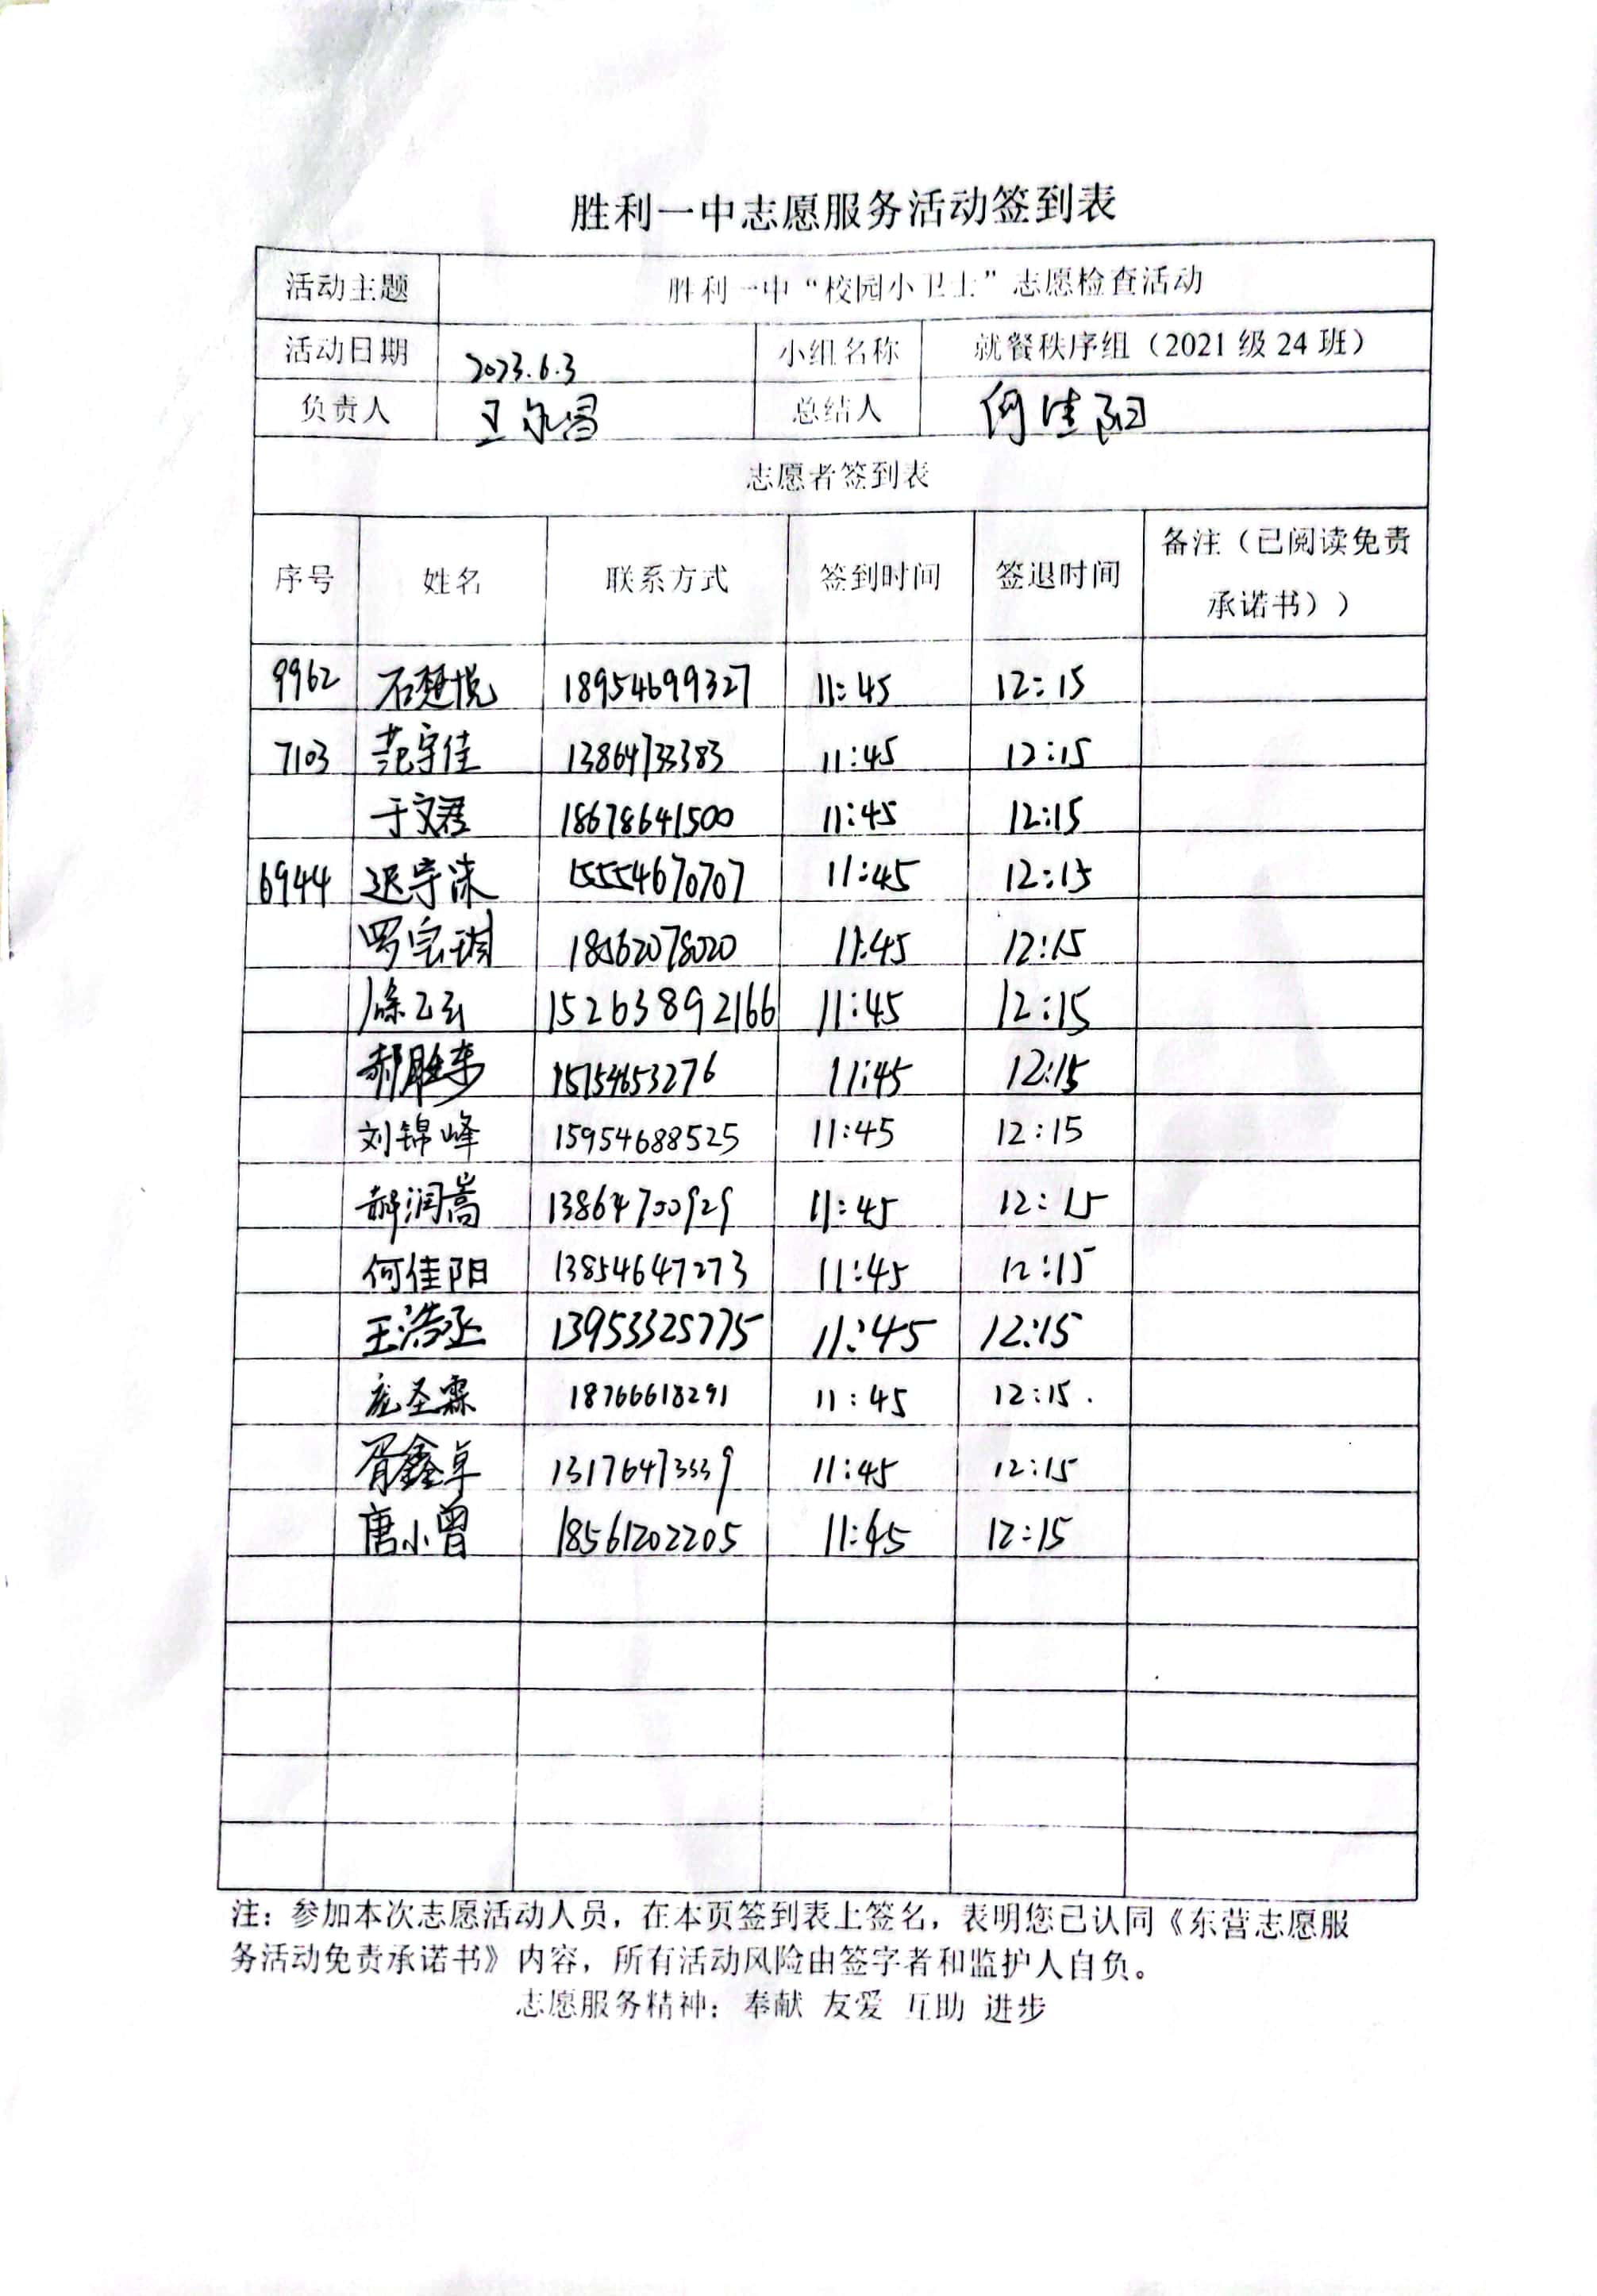 胜利一中志愿服务活动签到表
活动主题 胜利一中“校园小卫士”志愿检查活动
活动日期 2023.6.3 小组名称 就餐秩序组（2021 级 24 班）
负责人 王 总结人 何佳阳
志愿者签到表
序号 姓名 联系方式 签到时间 签退时间 备注（已阅读免责
承诺书））
9962 石楚悦 18954699327 11:45 12:15
7103 范宇佳 13864733383 11:45 12:15
于文君 18678641500 11:45 12:15
6944 迟守沫 15554670707 11:45 12:15
罗宝琪 18562078020 11:45 12:15
15263892166 11:45 12:15
郝胜东 15154653276 11:45 12:15
刘锦峰 15954688525 11:45 12:15
郝润嵩 13864700929 11:45 12:15
何佳阳 13854647273 11:45 12:15
王浩丞 13953325775 11:45 12:15
庞圣霖 18766618291 11:45 12:15.
胥鑫卓 13176473539 11:45 12:15
唐小曾 18561202205 11:45 12:15
注：参加本次志愿活动人员，在本页签到表上签名，表明您已认同《东营志愿服
务活动免责承诺书》内容，所有活动风险由签字者和监护人自负。
志愿服务精神：奉献 友爱 互助 进步